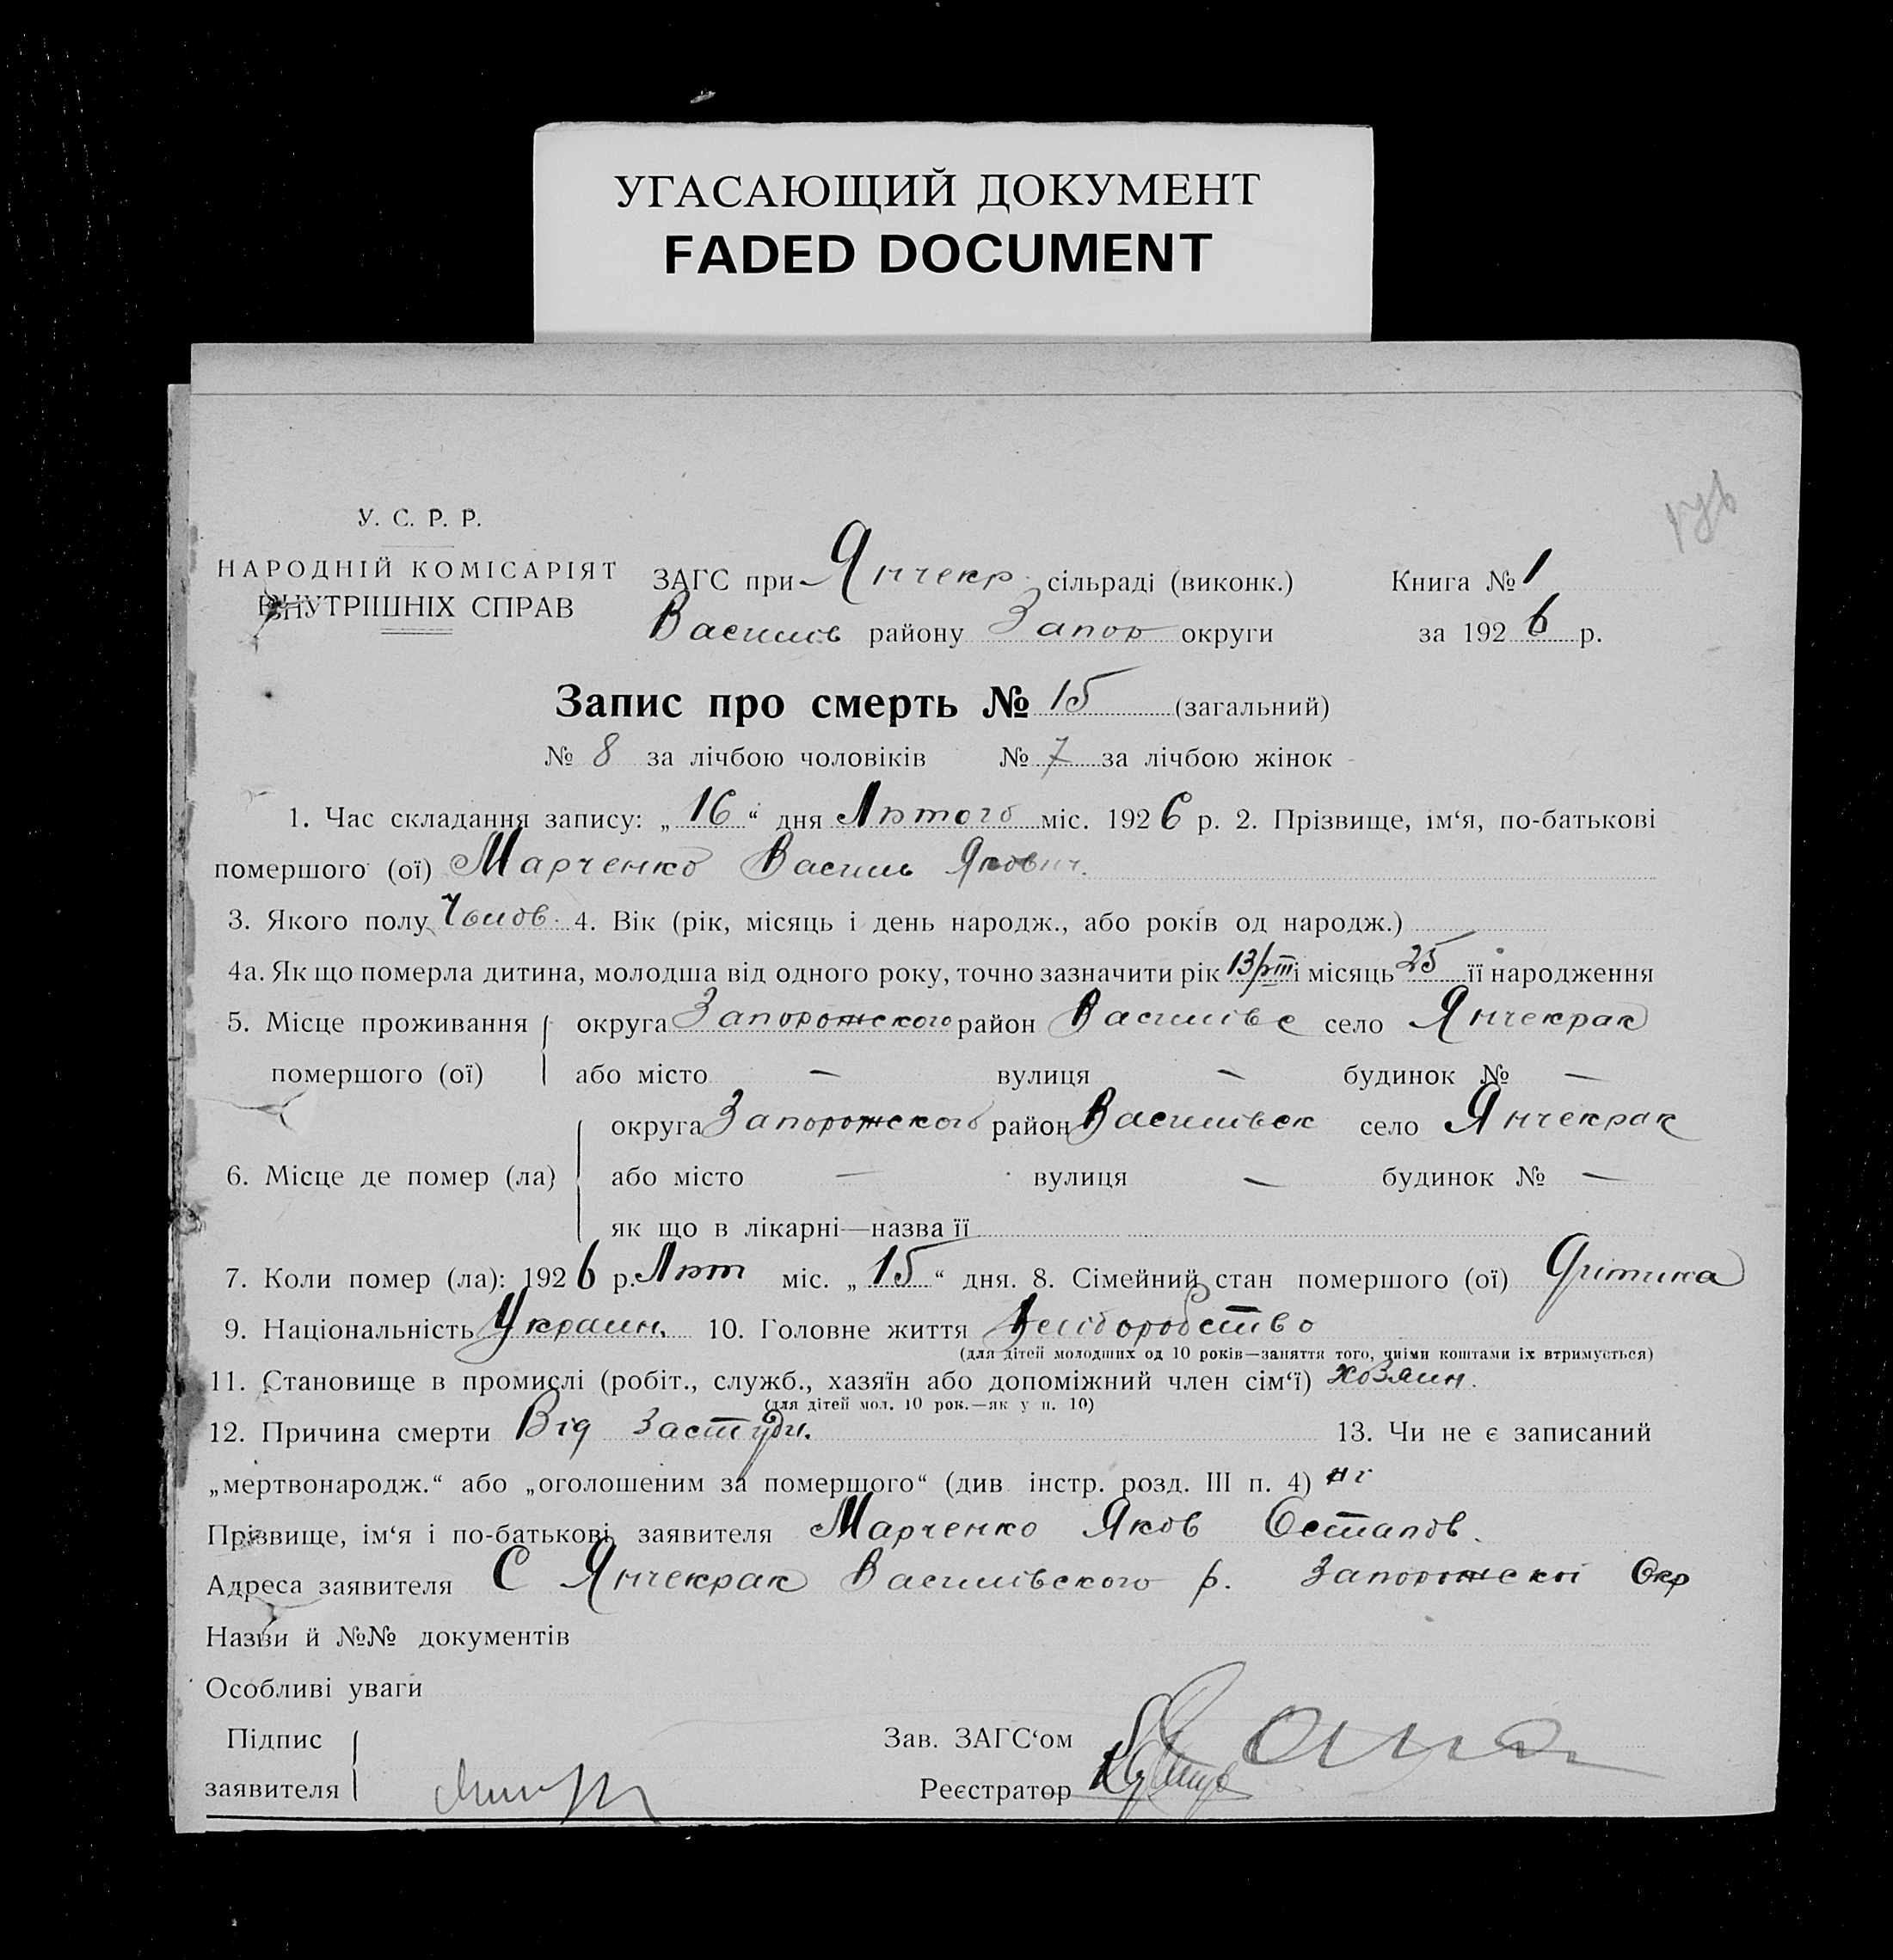 УГАСАЮЩИЙ ДОКУМЕНТ
FADED DOCUMENT
У. С. Р. Р.
НАРОДНІЙ КОМІСАРІЯТ
ВНУТРІШНІХ СПРАВ
ЗАГС при Янчекр. сільраді (виконк.) Книга № 1
Василів району Запор округи за 1926 р.
Запис про смерть № 15 (загальний)
№ 8 за лічбою чоловіків № 7 за лічбою жінок
1. Час складання запису: „16“ дня Лютого міс. 1926 р. 2. Прізвище, ім‘я, по-батькові
помершого (ої) Марченко Василь Якович.
3. Якого полу Чолов. 4. Вік (рік, місяць і день народж., або років од народж.)
4а. Як що померла дитина, молодша від одного року, точно зазначити рік і місяць 25 її народження
5. Місце проживання округа Запорожского район Василівс село Янчекрак
помершого (ої) або місто — вулиця — будинок № —
округа Запорожского район Василівск село Янчекрак
6. Місце де помер (ла) або місто — вулиця — будинок № —
як що в лікарні—назва її
7. Коли помер (ла): 1926 р. Лют міс. „15“ дня. 8. Сімейний стан помершого (ої)
9. Національність Украин. 10. Головне життя
(для дітей молодших од 10 років—заняття того, чиїми коштами їх втримується)
11. Становище в промислі (робіт., служб., хазяїн або допоміжний член сім‘ї) хозяин.
(для дітей мол. 10 рок.—як у п. 10)
12. Причина смерти Від застуди. 13. Чи не є записаний
„мертвонародж.“ або „оголошеним за помершого“ (див. інстр. розд. III п. 4)
Прізвище, ім‘я і по-батькові заявителя Марченко Яков Остапов.
Адреса заявителя С Янчекрак Василівского р. Запорожскої Окр
Назви й №№ документів
Особливі уваги
Підпис Зав. ЗАГС‘ом
заявителя Реєстратор